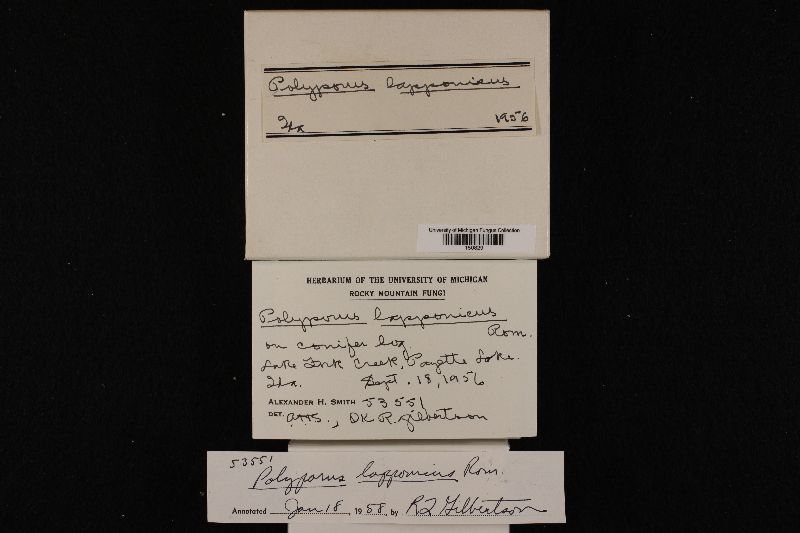 Polyporus lapponicus
Ida 1956
University of Michigan Fungus Collection
150829
HERBARIUM OF THE UNIVERSITY OF MICHIGAN
ROCKY MOUNTAIN FUNGI
Polyporus lapponicus
Rom.
on conifer log
Lake Fork Creek, Payette Lake.
Ida. Sept. 18, 1956
ALEXANDER H. SMITH 53551
DET. AHS., OK R. Gilbertson
53551
Polyporus lapponicus Rom.
Annotated Jan 18, 1958, by RL Gilbertson